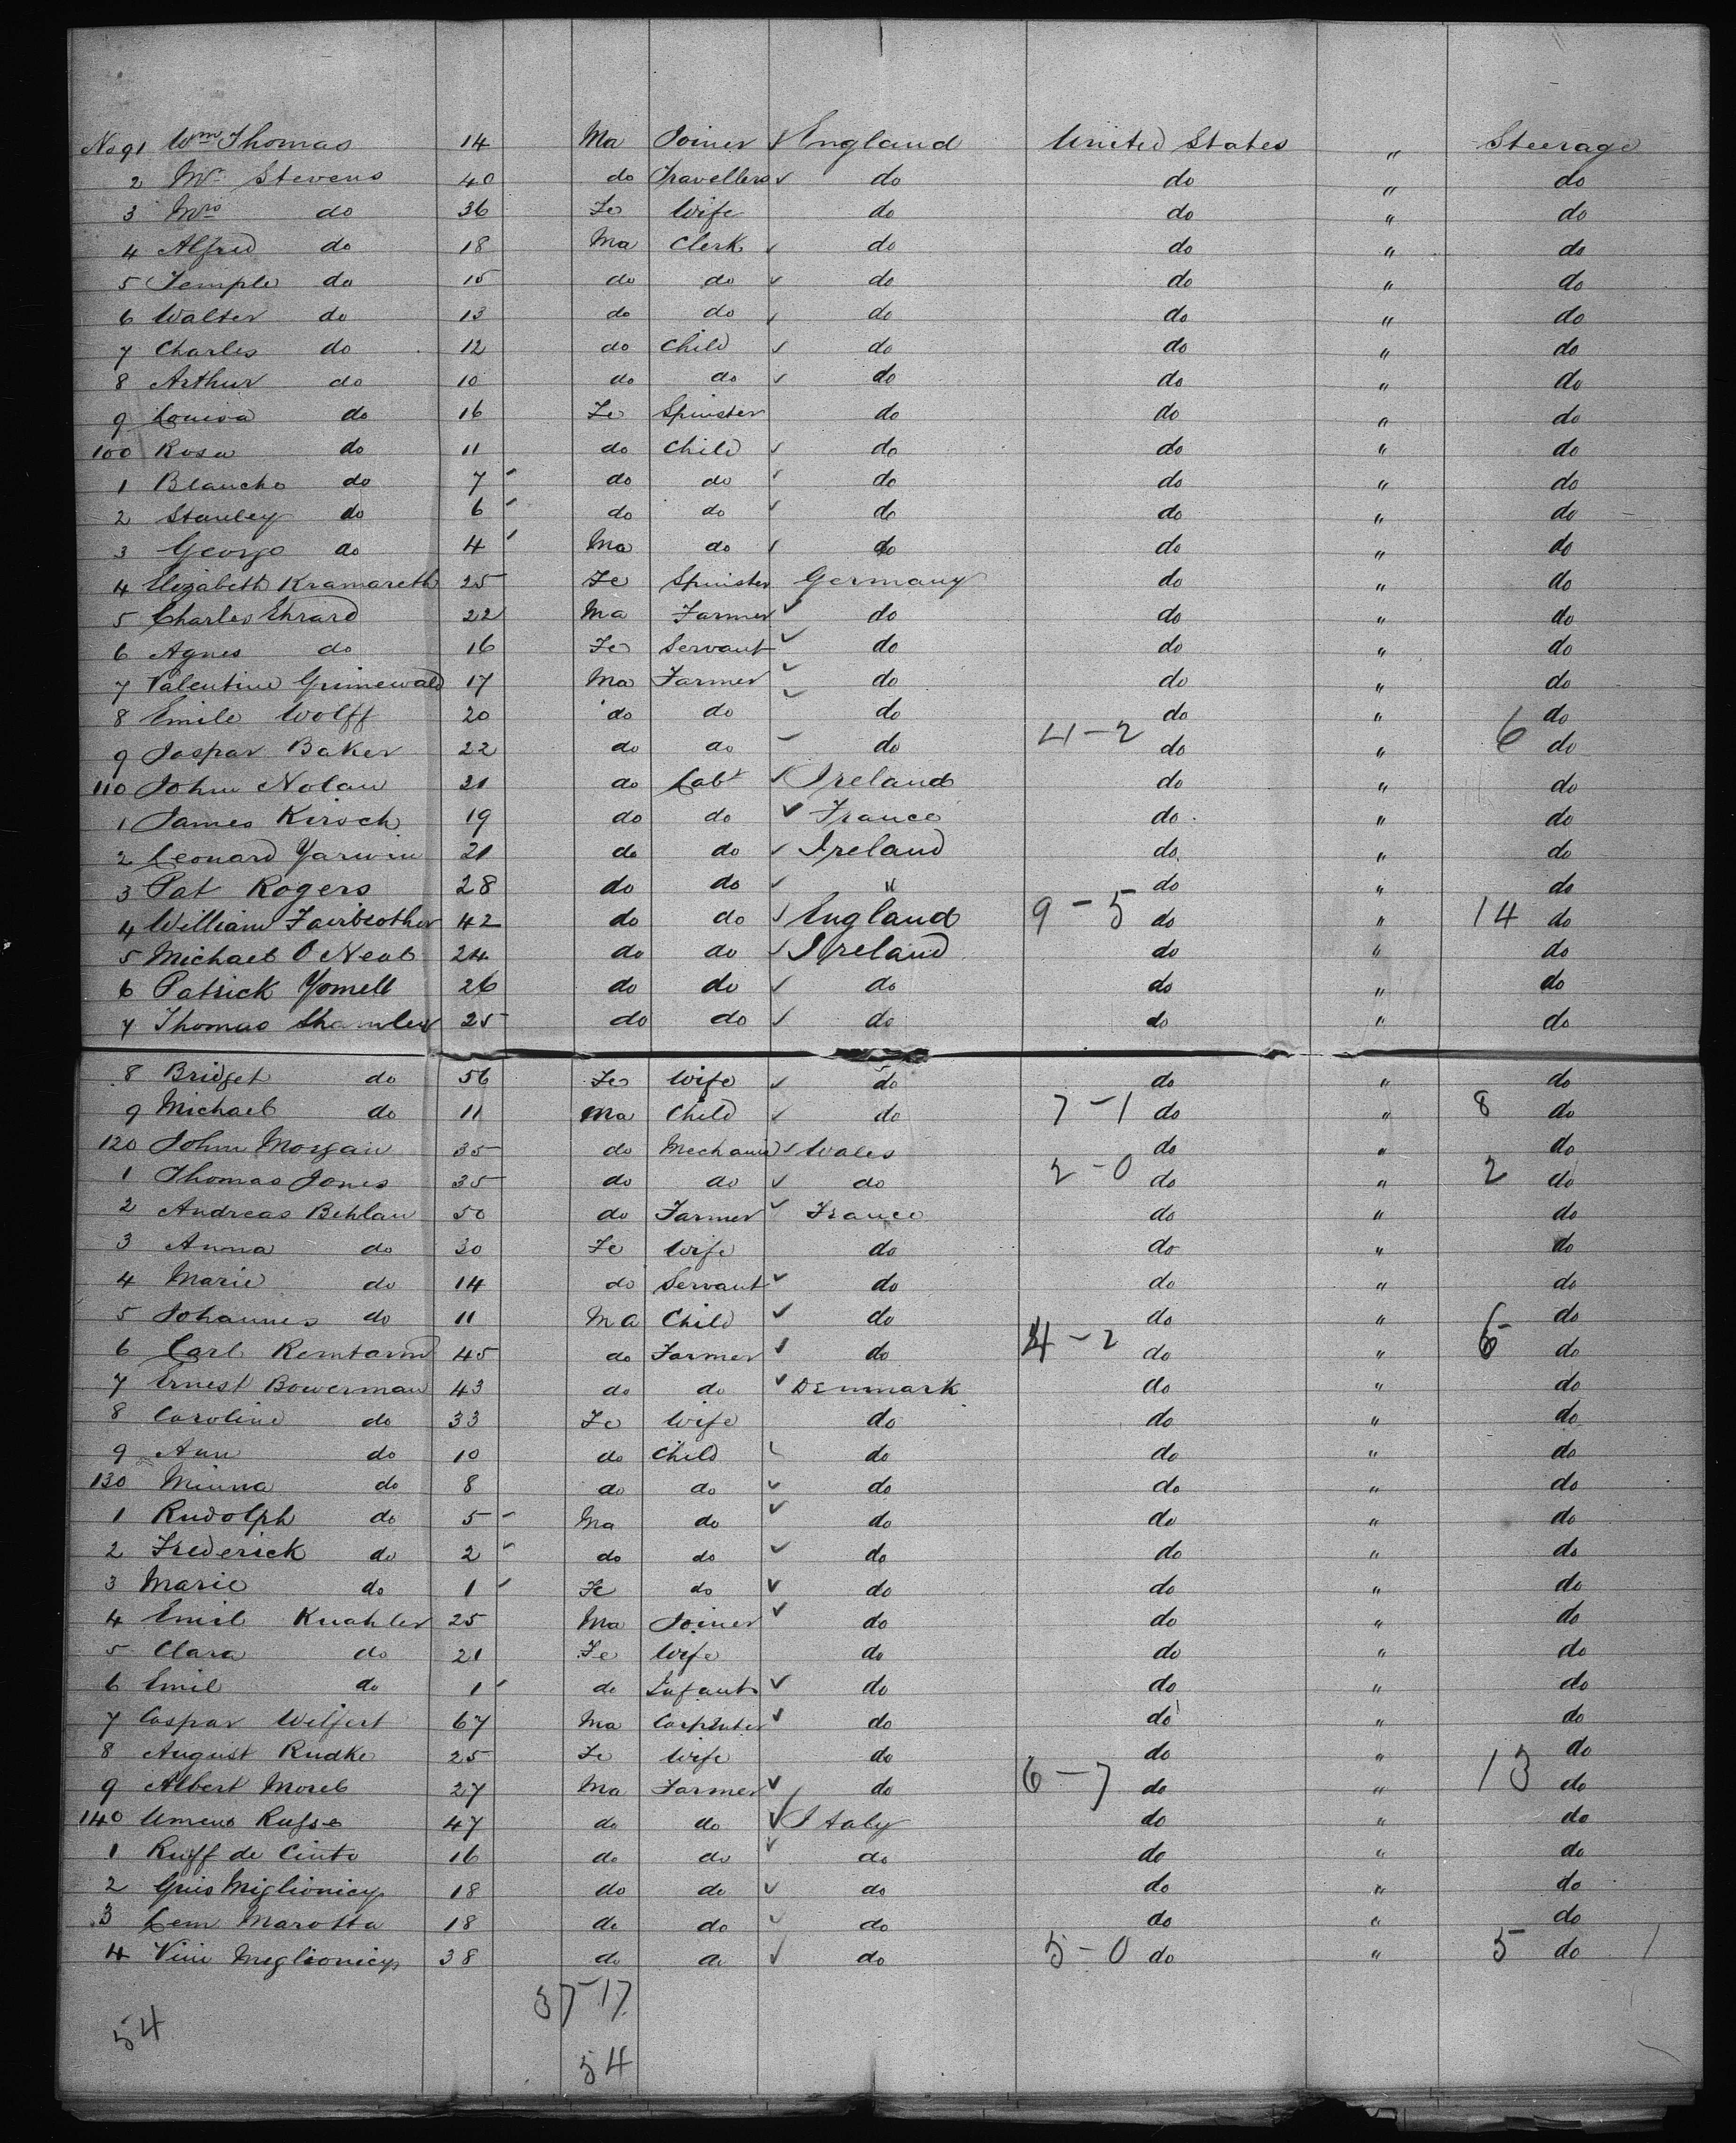 No 91 Wm Thomas 14 Ma Joiner ✓ England United States " Steerage
2 Mr Stevens 40 do Travellers ✓ do do " do
3 Mrs do 36 Fe Wife do do " do
4 Alfred do 18 Ma Clerk ✓ do do " do
5 Temple do 15 do do ✓ do do " do
6 Walter do 13 do do ✓ do do " do
7 Charles do 12 do Child ✓ do do " do
8 Arthur do 10 do do ✓ do do " do
9 Louisa do 16 Fe Spinster do do " do
100 Rosa do 11 do Child ✓ do do " do
1 Blanche do 7 do do ✓ do do " do
2 Stanley do 6 do do ✓ do do " do
3 George do 4 Ma do ✓ do do " do
4 Elizabeth Kramareth 25 Fe Spinster Germany do " do
5 Charles Ehrard 22 Ma Farmer ✓ do do " do
6 Agnes do 16 Fe Servant ✓ do do " do
7 Valentine Grimewald 17 Ma Farmer ✓ do do " do
8 Emile Wolff 20 do do ✓ do do " do
9 Jaspar Baker 22 do do do 4-2 do " 6 do
110 John Nolan 21 do Labr ✓ Ireland do " do
1 James Kirsch 19 do do ✓ France do " do
2 Leonard 21 do do ✓ Ireland do " do
3 Pat Rogers 28 do do ✓ " do " do
4 William Fairbrother 42 do do ✓ England 9-5 do " 14 do
5 Michael O Neal 24 do do ✓ Ireland do " do
6 Patrick Yomell 26 do do ✓ do do " do
7 Thomas 25 do do ✓ do do " do
8 Bridget do 56 Fe Wife ✓ do do " do
9 Michael do 11 Ma Child ✓ do 7-1 do " 8 do
120 John Morgan 35 do Mechanic ✓ Wales do " do
1 Thomas Jones 35 do do ✓ do 2-0 do " 2 do
2 Andreas Behlau 50 do Farmer ✓ France do " do
3 Anna do 30 Fe Wife do do " do
4 Marie do 14 do Servant ✓ do do " do
5 Johannes do 11 Ma Child ✓ do do " do
6 Carl 45 do Farmer ✓ do 4-2 do " do
7 Ernest Bowerman 43 do do ✓ Denmark do " do
8 Caroline do 33 Fe Wife do do " do
9 Ann do 10 do Child do do " do
130 Minna do 8 do do ✓ do do " do
1 Rudolph do 5 Ma do ✓ do do " do
2 Frederick do 2 do do ✓ do do " do
3 Marie do 1 Fe do ✓ do do " do
4 Emil Kuahler 25 Ma Joiner ✓ do do " do
5 Clara do 21 Fe Wife do do " do
6 Emil do 1 do Infant ✓ do do " do
7 Caspar Welfert 67 Ma Carpenter ✓ do do " do
8 August Rudke 25 Fe Wife do do " do
9 Albert Morel 27 Ma Farmer ✓ do 6-7 do " 13 do
140 47 do do ✓ Italy do " do
1 Ruff de Cinto 16 do do ✓ do do " do
2 Miglionicy 18 do do ✓ do do " do
3 Lem Marotta 18 do do ✓ do do " do
4 Vini Meglionicy 38 do do ✓ do 5-0 do " 5 do
37-17
54
54